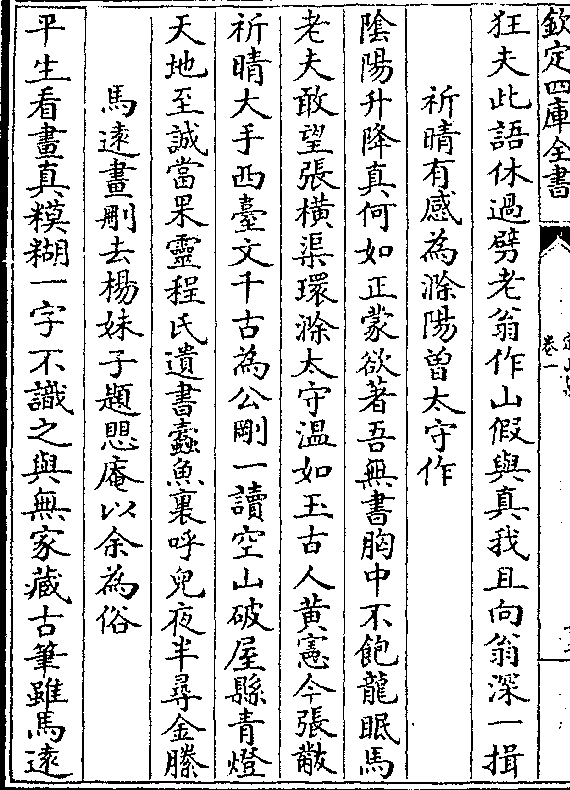 欽定四庫全書
卷一
狂夫此語休過劈老翁作山假與真我且向翁深一揖
祈晴有感為滁陽曾太守作
陰陽升降真何如正蒙欲著吾無書胸中不飽龍眠馬
老夫敢望張橫渠環滁太守溫如玉古人黃憲今張敞
祈晴大手西臺文千古為公剛一讀空山破屋縣青燈
天地至誠當果靈程氏遺書蠹魚裏呼兒夜半尋金縢
馬逺畫刪去楊妹子題思庵以余為俗
平生看畫真糢糊一字不識之與無家藏古筆雖馬逺